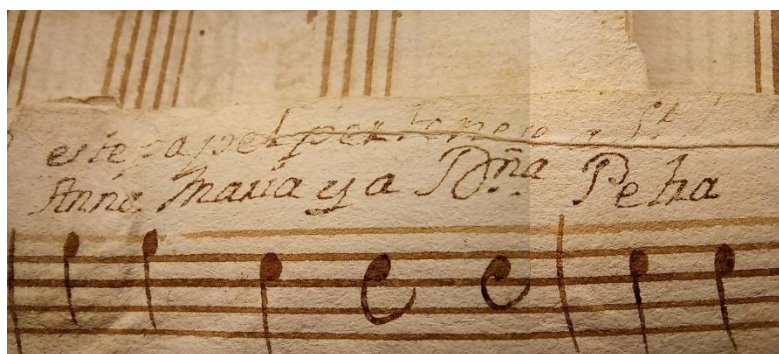 este papel pertenece a
Anna Maria y a Dña Petra